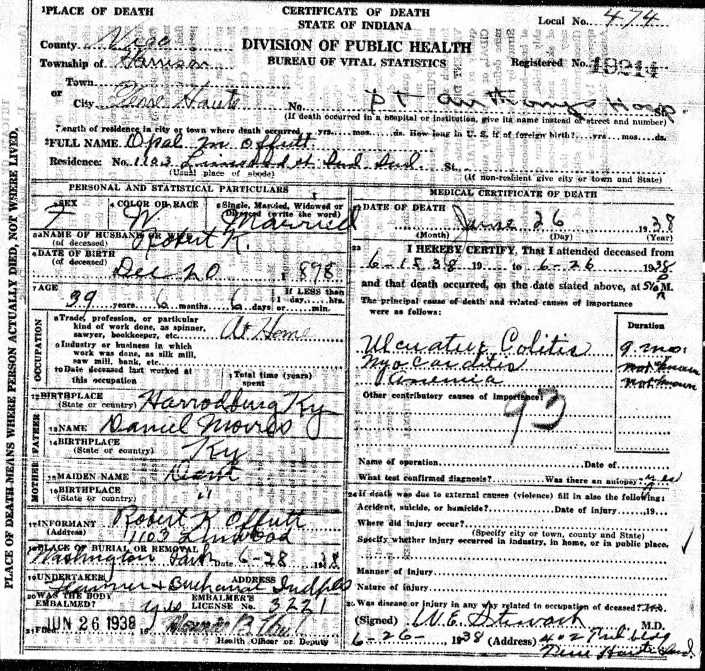 1 PLACE OF DEATH
CERTIFICATE OF DEATH
STATE OF INDIANA
Local No. 474
County Vigo
DIVISION OF PUBLIC HEALTH
Township of Harrison
BUREAU OF VITAL STATISTICS
Registered No. 19214
Town
or
City Terre Haute No. St Anthonys Hosp St.
(If death occurred in a hospital or institution, give its name instead of street and number)
Length of residence in city or town where death occurred yrs. mos. ds. How long in U. S. if of foreign birth? yrs. mos. ds.
2 FULL NAME Opal M Offutt
Residence: No. 1103 St.
(Usual place of abode) (If non-resident give city or town and State)
PLACE OF DEATH MEANS WHERE PERSON ACTUALLY DIED, NOT WHERE LIVED.
PERSONAL AND STATISTICAL PARTICULARS
3 SEX 4 COLOR OR RACE 5 Single, Married, Widowed or Divorced (write the word)
F W Married
5a NAME OF HUSBAND OR WIFE
(of deceased) Robert K.
6 DATE OF BIRTH
(of deceased) Dec 20 1898
7 AGE If LESS than
39 years 6 months 6 days 1 day, hrs. or min.
OCCUPATION
8 Trade, profession, or particular
kind of work done, as spinner,
sawyer, bookkeeper, etc. At Home
9 Industry or business in which
work was done, as silk mill,
saw mill, bank, etc.
10 Date deceased last worked at
this occupation
Total time (years)
spent
12 BIRTHPLACE
(State or country) Harrodsburg Ky
FATHER
13 NAME Daniel Morris
14 BIRTHPLACE
(State or country) Ky
MOTHER
15 MAIDEN NAME
16 BIRTHPLACE "
(State or country)
17 INFORMANT Robert K Offutt
(Address) 1103 Linwood
18 PLACE OF BURIAL OR REMOVAL
Washington Park Date 6-28 1938
19 UNDERTAKER ADDRESS
& Buchanan Indpls
20 WAS THE BODY
EMBALMED? yes EMBALMER'S
LICENSE No. 3221
21 Filed JUN 26 1938
Health Officer or Deputy
MEDICAL CERTIFICATE OF DEATH
DATE OF DEATH
June 26 1938
(Month) (Day) (Year)
22 I HEREBY CERTIFY, That I attended deceased from
6-15 38 19 to 6-26 1938
and that death occurred, on the date stated above, at M.
The principal cause of death and related causes of importance
were as follows:
Duration
Ulcerative Colitis 9 mo.
Myocarditis not known
Anemia not known
Other contributory causes of importance:
93
Name of operation Date of
What test confirmed diagnosis? Was there an autopsy? yes
24 If death was due to external causes (violence) fill in also the following:
Accident, suicide, or homicide? Date of injury 19
Where did injury occur?
(Specify city or town, county and State)
Specify whether injury occurred in industry, in home, or in public place.
Manner of Injury
Nature of injury
Was disease or injury in any way related to occupation of deceased? no.
(Signed) W.E. Stewart M.D.
6-26- 1938 (Address) 402 bldg
Terre Haute Ind.